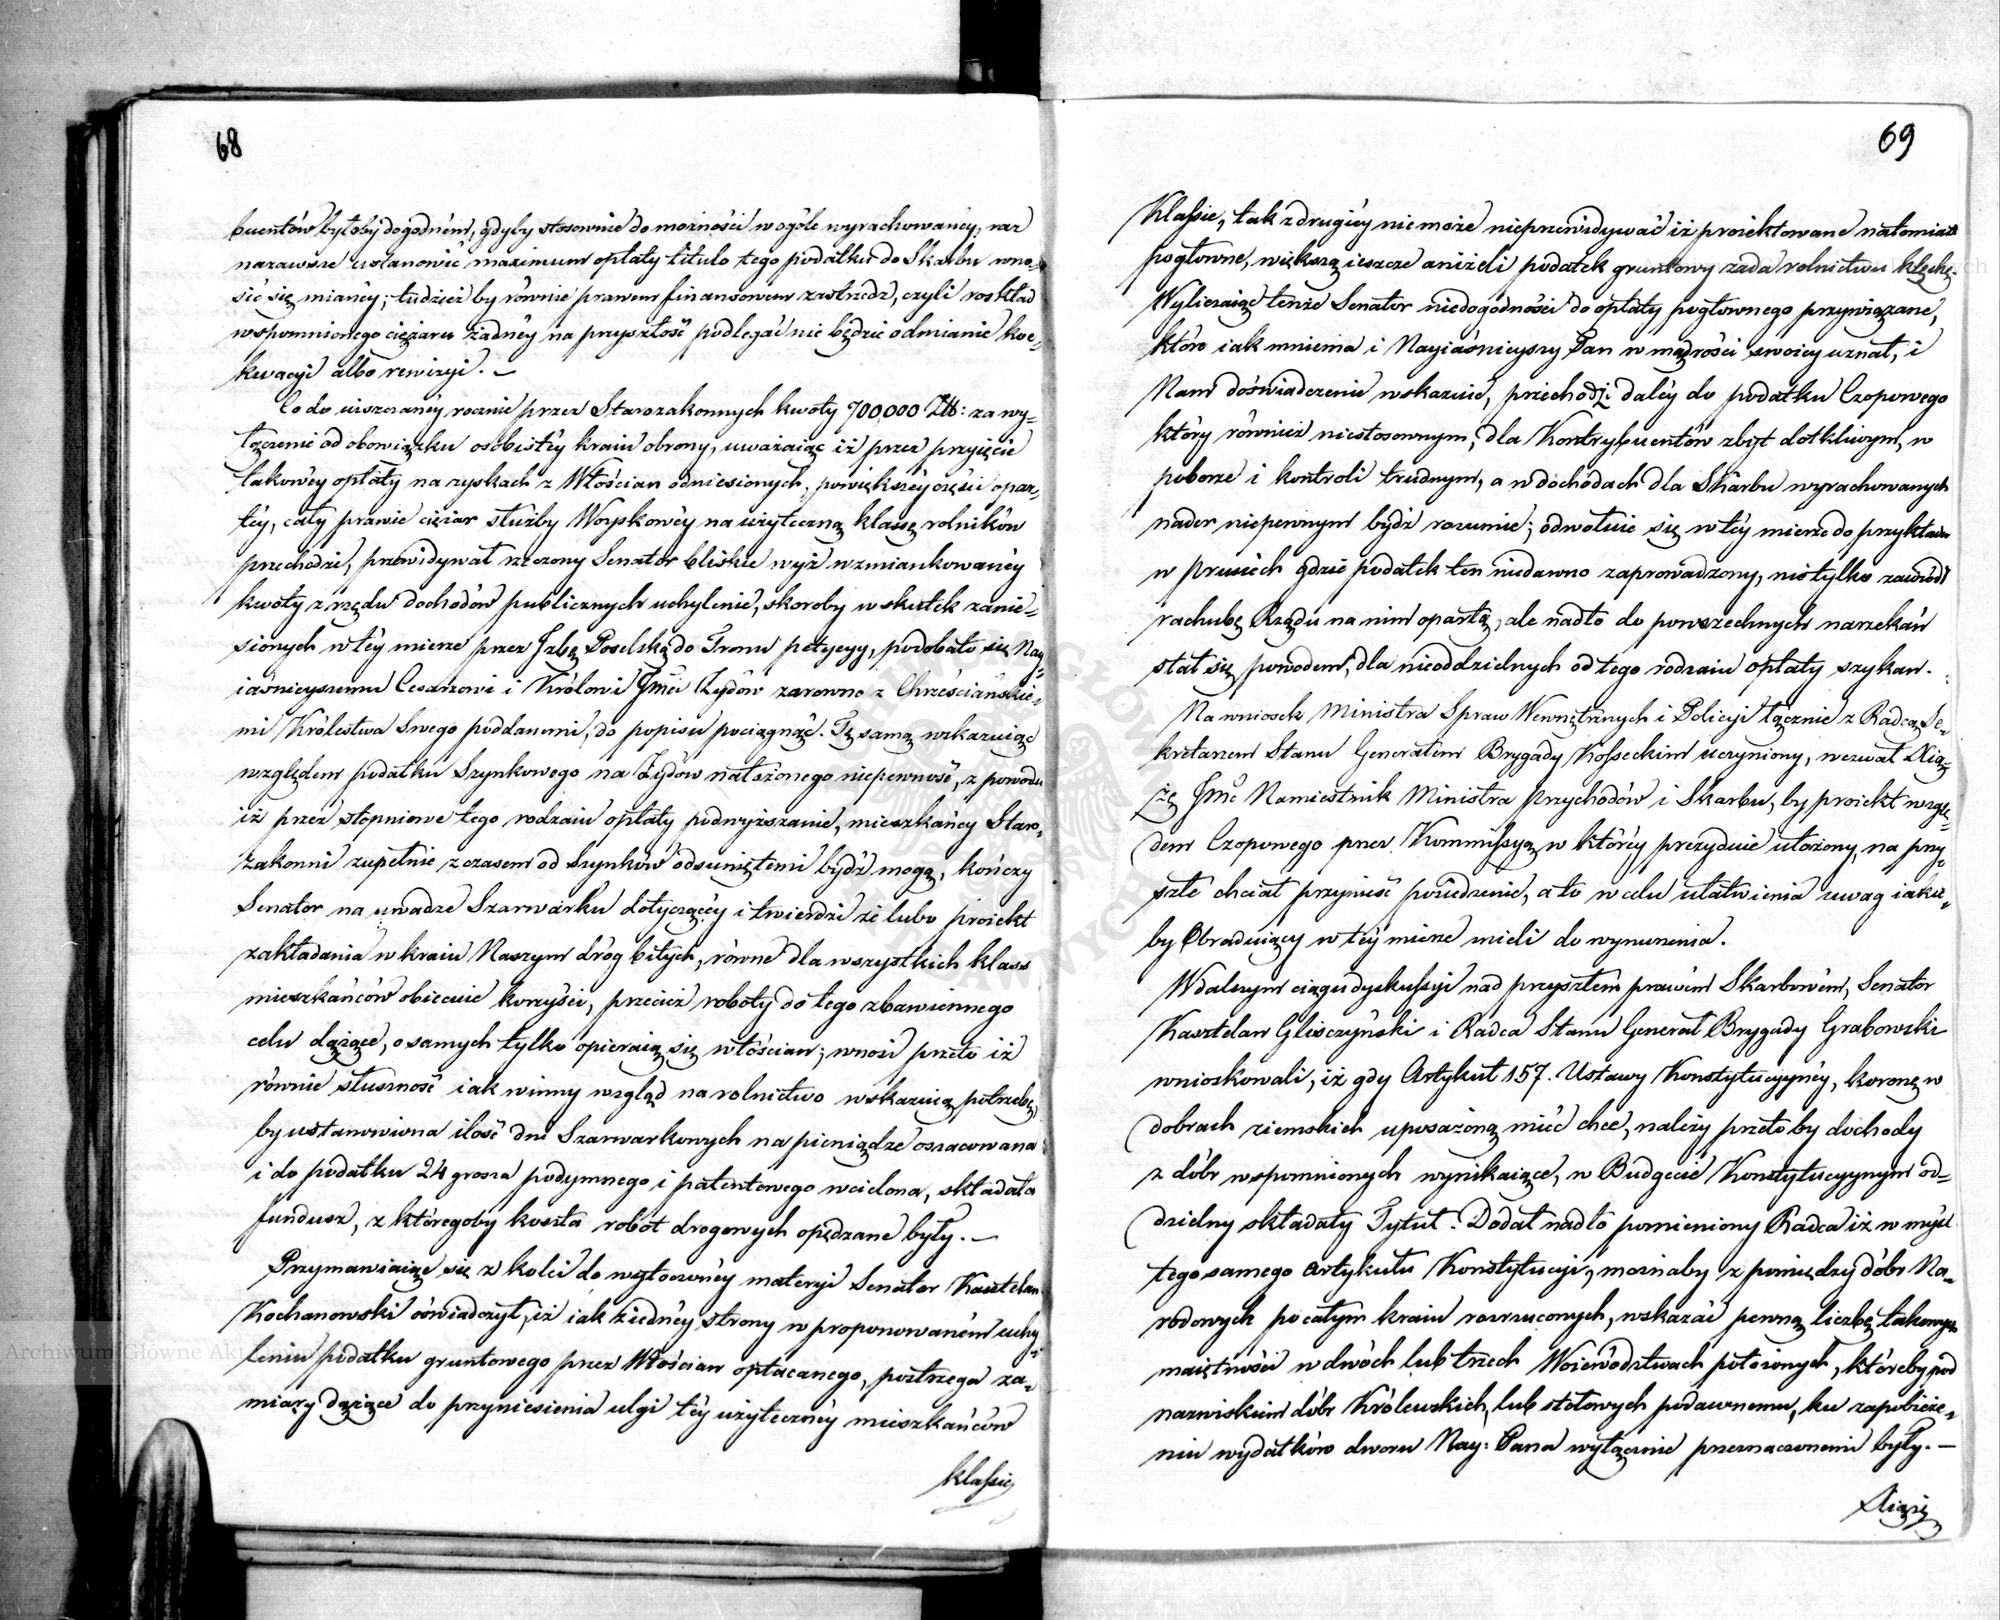 68
buentów byłoby dogodném, gdyby stosownie do możności w ogóle wyrachowanéy, raz
na zawsze ustanowić maximum opłaty titulo tego podatku do Skarbu wno-
sić się mianéy; tudzież by równie prawem finansowem zastrzedz, czyli rozkład
wspomnionego ciężaru żadnéy na przyszłość podlegać nie będzie odmianie koe-
kwacyi albo rewizyi. —
Co do uiszczanéy rocznie przez Starozakonnych kwoty 700,000 Złł: za wy-
łączenie od obowiązku osobistéy kraiu obrony, uważaiąc iż przez przyięcie
takowéy opłaty na zyskach z Włościan odniesionych, po większéy części opar-
téy, cały prawie ciężar służby Woyskowéy na użyteczną klassę rolników
przechodzi, przewidywał rzeczony Senator bliskie wyż wzmiankowanéy
kwoty z rzędu dochodów publicznych uchylenie, skoroby w skutek zanie-
sionych w téy mierze przez Izbę Poselską do Tronu petycyy, podobało się Nay-
iaśnieyszemu Cesarzowi i Królowi Jmći Żydów zarowno z Chrześciańskie-
mi Królestwa Swego poddanemi, do popisu pociągnąć. Tę samą wskazuiąc
względem podatku Szynkowego na Żydów nałożonego niepewność, z powodu
iż przez stopniowe tego rodzaiu opłaty podwyższanie, mieszkańcy Staro-
zakonni zupełnie z czasem od Szynków odsuniętemi bydź mogą, kończy
Senator na uwadze Szarwarku dotyczącéy i twierdzi że lubo proiekt
zakładania w kraiu Naszym dróg bitych, równe dla wszystkich klass
mieszkańców obiecuie korzyści, przecież roboty do tego zbawiennego
celu dążące, o samych tylko opieraią się włościan; wnosi przeto iż
równie słuszność iak winny wzgląd na rolnictwo wskazuią potrzebę
by ustanowiona ilość dni Szarwarkowych na pieniądze oszacowana
i do podatku 24 grosza podymnego i patentowego wcielona, składała
fundusz, z któregoby koszta robot drogowych opędzane były. —
Przymawiaiąc się z kolei do wytoczonéy materyi Senator Kasztelan
Kochanowski oświadczył, iż iak z iednéy strony w proponowaném uchy-
leniu podatku gruntowego przez Włościan opłacanego, postrzega za-
miary dążące do przyniesienia ulgi téy użytecznéy mieszkańców
klassie
69
Klassie, tak z drugiéy nie może nieprzewidywać iż proiektowane natomiast
pogłowne, większą ieszcze aniżeli podatek gruntowy zada rolnictwu klęskę.
Wyliczaiąc tenże Senator niedogodności do opłaty pogłownego przywiązane,
które iak mniema i Nayiaśnieyszy Pan w mądrości swoiey uznał, i
Nam doświadczenie wskazuie, przechodzi daléy do podatku Czopowego
który również niestosownym, dla Kontrybuentów zbyt dotkliwym, w
poborze i kontroli trudnym, a w dochodach dla Skarbu wyrachowanych
nader niepewnym bydź rozumie; odwołuie się w téy mierze do przykładu
w Prusiech gdzie podatek ten niedawno zaprowadzony, nie tylko zawiódł
rachubę Rządu na nim opartą, ale nadto do powszechnych narzekań
stał się powodem, dla nieoddzielnych od tego rodzaiu opłaty szykan.
Na wniosek Ministra Spraw Wewnętrznych i Policyi łącznie z Radcą Se-
kretarzem Stanu Generałem Brygady Kosseckim uczyniony, wezwał Xią-
żę Jmć Namiestnik Ministra Przychodów i Skarbu, by proiekt wzglę-
dem Czopowego przez Kommissyą w któréy prezyduie ułożony, na przy-
szłe chciał przynieść posiedzenie, a to w celu ułatwienia uwag iakie-
by Obraduiący w téy mierze mieli do wynurzenia.
W dalszym ciągu dyskussyi nad przyszłem prawem Skarbowém, Senator
Kasztelan Gliszczyński i Radca Stanu Generał Brygady Grabowski
wnioskowali, iż gdy Artykuł 157. Ustawy Konstytucyynéy, koronę w
dobrach ziemskich uposażoną mieć chce, należy przeto by dochody
z dóbr wspomnionych wynikaiące, w Budgecie Konstytucyynym od-
dzielny składały Tytuł. Dodał nadto pomieniony Radca iż w myśl
tego samego Artykułu Konstytucyi, możnaby z pomiędzy dóbr Na-
rodowych po całym kraiu rozrzuconych, wskazać pewną liczbę takowych
maiętności w dwóch lub trzech Woiewództwach położonych, któreby pod
nazwiskiem dóbr Królewskich, lub stołowych po dawnemu, ku zapobieże-
niu wydatków dworu Nay: Pana wyłącznie przeznaczonemi były. —
Xiążę